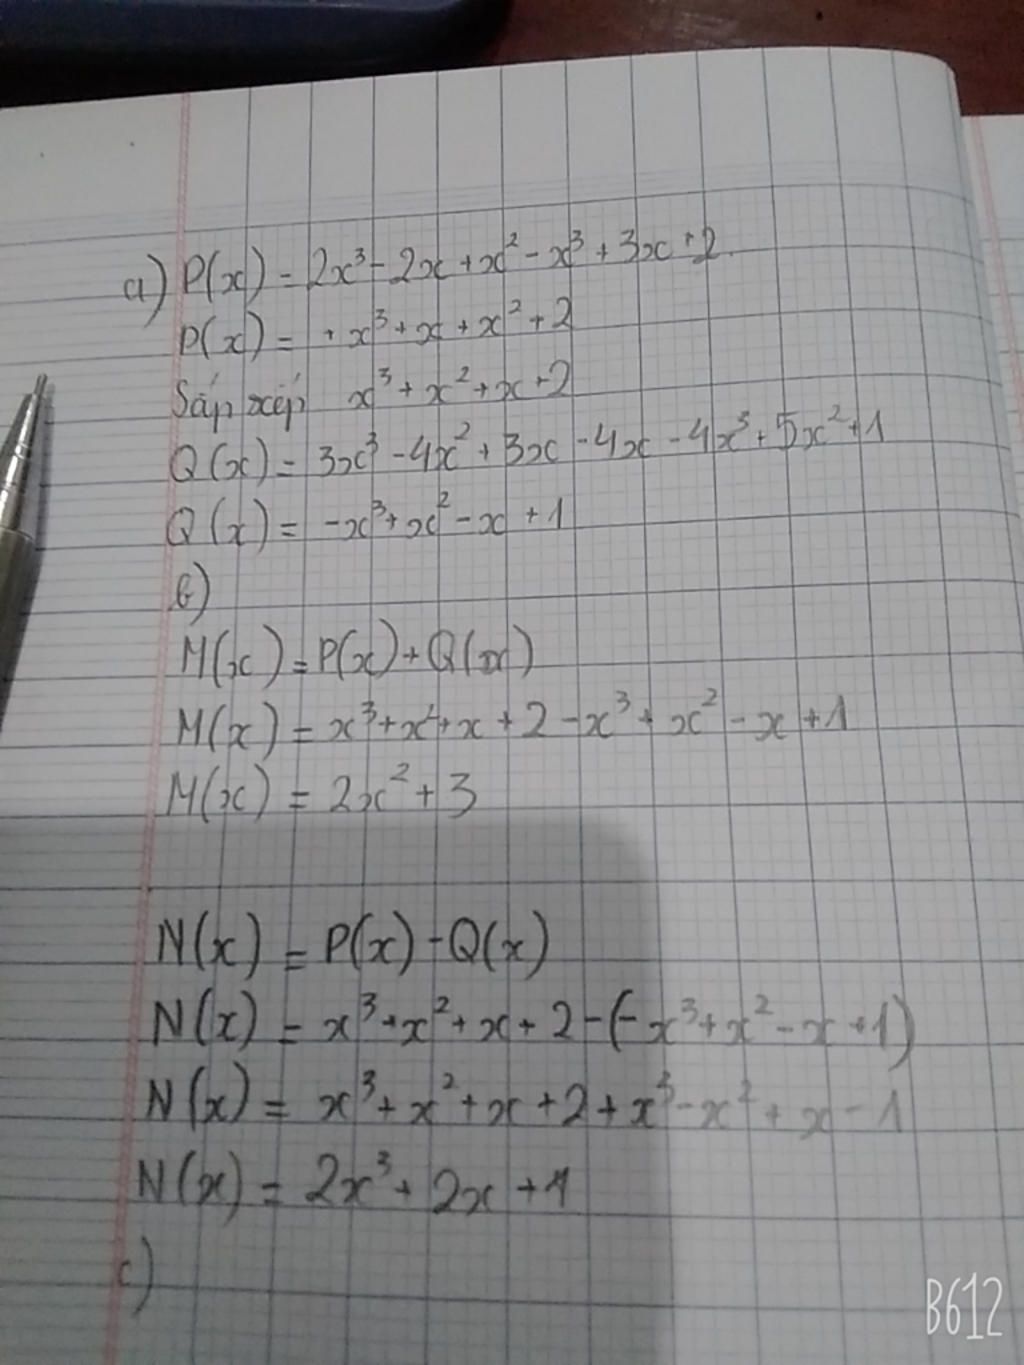 a) P(x) = 2x³ - 2x + x² - x³ + 3x + 2.
P(x) = + x³ + x + x² + 2
Sắp xếp x³ + x² + x + 2
Q(x) = 3x³ - 4x² + 3x - 4x - 4x³ + 5x² + 1
Q(x) = -x³ + x² - x + 1
b)
M(x) = P(x) + Q(x)
M(x) = x³ + x² + x + 2 - x³ + x² - x + 1
M(x) = 2x² + 3
N(x) = P(x) - Q(x)
N(x) = x³ + x² + x + 2 - (-x³ + x² - x + 1)
N(x) = x³ + x² + x + 2 + x³ - x² + x - 1
N(x) = 2x³ + 2x + 1
c)
B612